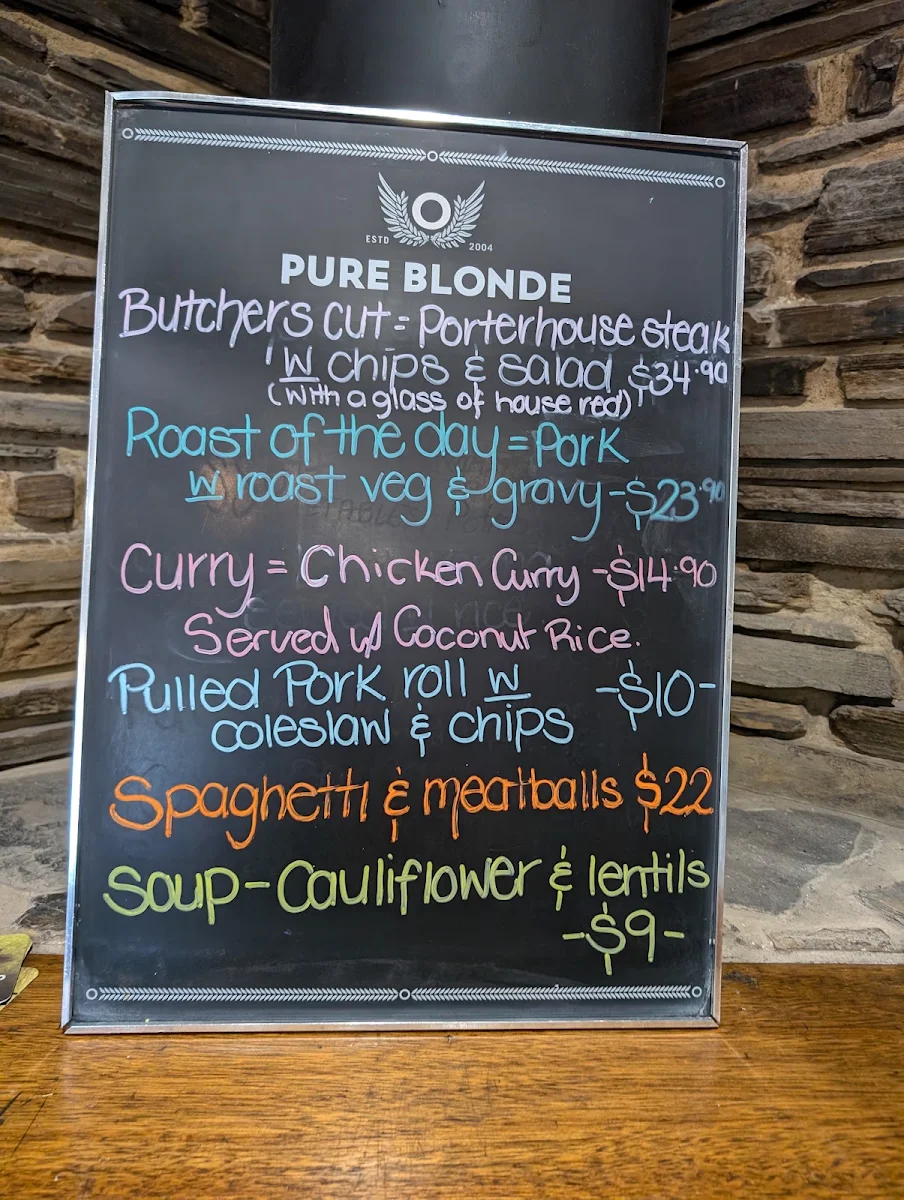 ESTD 2004
PURE BLONDE
Butchers cut = Porterhouse steak
w chips & salad $34.90
(with a glass of house red)
Roast of the day = Pork
w roast veg & gravy - $23.90
Curry = Chicken Curry - $14.90
Served w/ Coconut Rice.
Pulled Pork roll w - $10 -
coleslaw & chips
Spaghetti & meatballs $22
Soup - Cauliflower & lentils
- $9 -